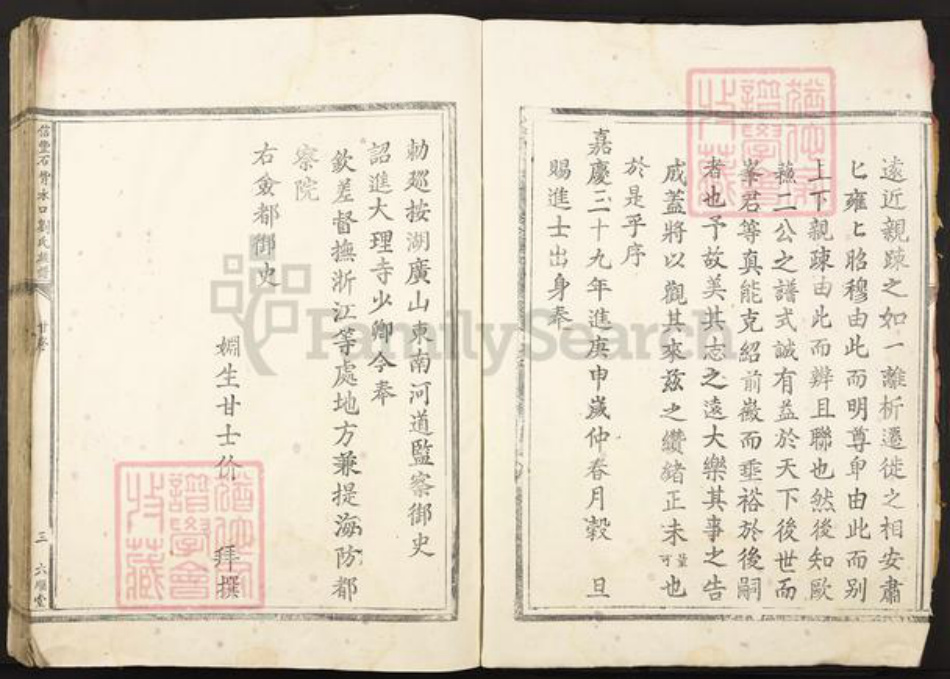 遠近親踈之如一離析遷徙之相安肅
匕雍匕昭穆由此而明尊卑由此而别
上下親踈由此而辨且聯也然後知歐
蘓二公之譜式誠有益於天下後世而
峯君等真能克紹前徽而垂裕於後嗣
者也予故美其志之遠大樂其事之告
成蓋將以觀其來兹之纘緒正未可量也
於是乎序
嘉慶三十九年進庚申嵗仲春月穀旦
賜進士出身奉
勅廵按湖廣山東南河道監察御史
詔進大理寺少卿今奉
欽差督撫浙江等處地方兼提海防都
察院
右僉都御史
姻生甘士价 拜撰
信豐石背水口劉氏族譜
甘序
三
六順堂
FamilySearch
譜學會
收藏